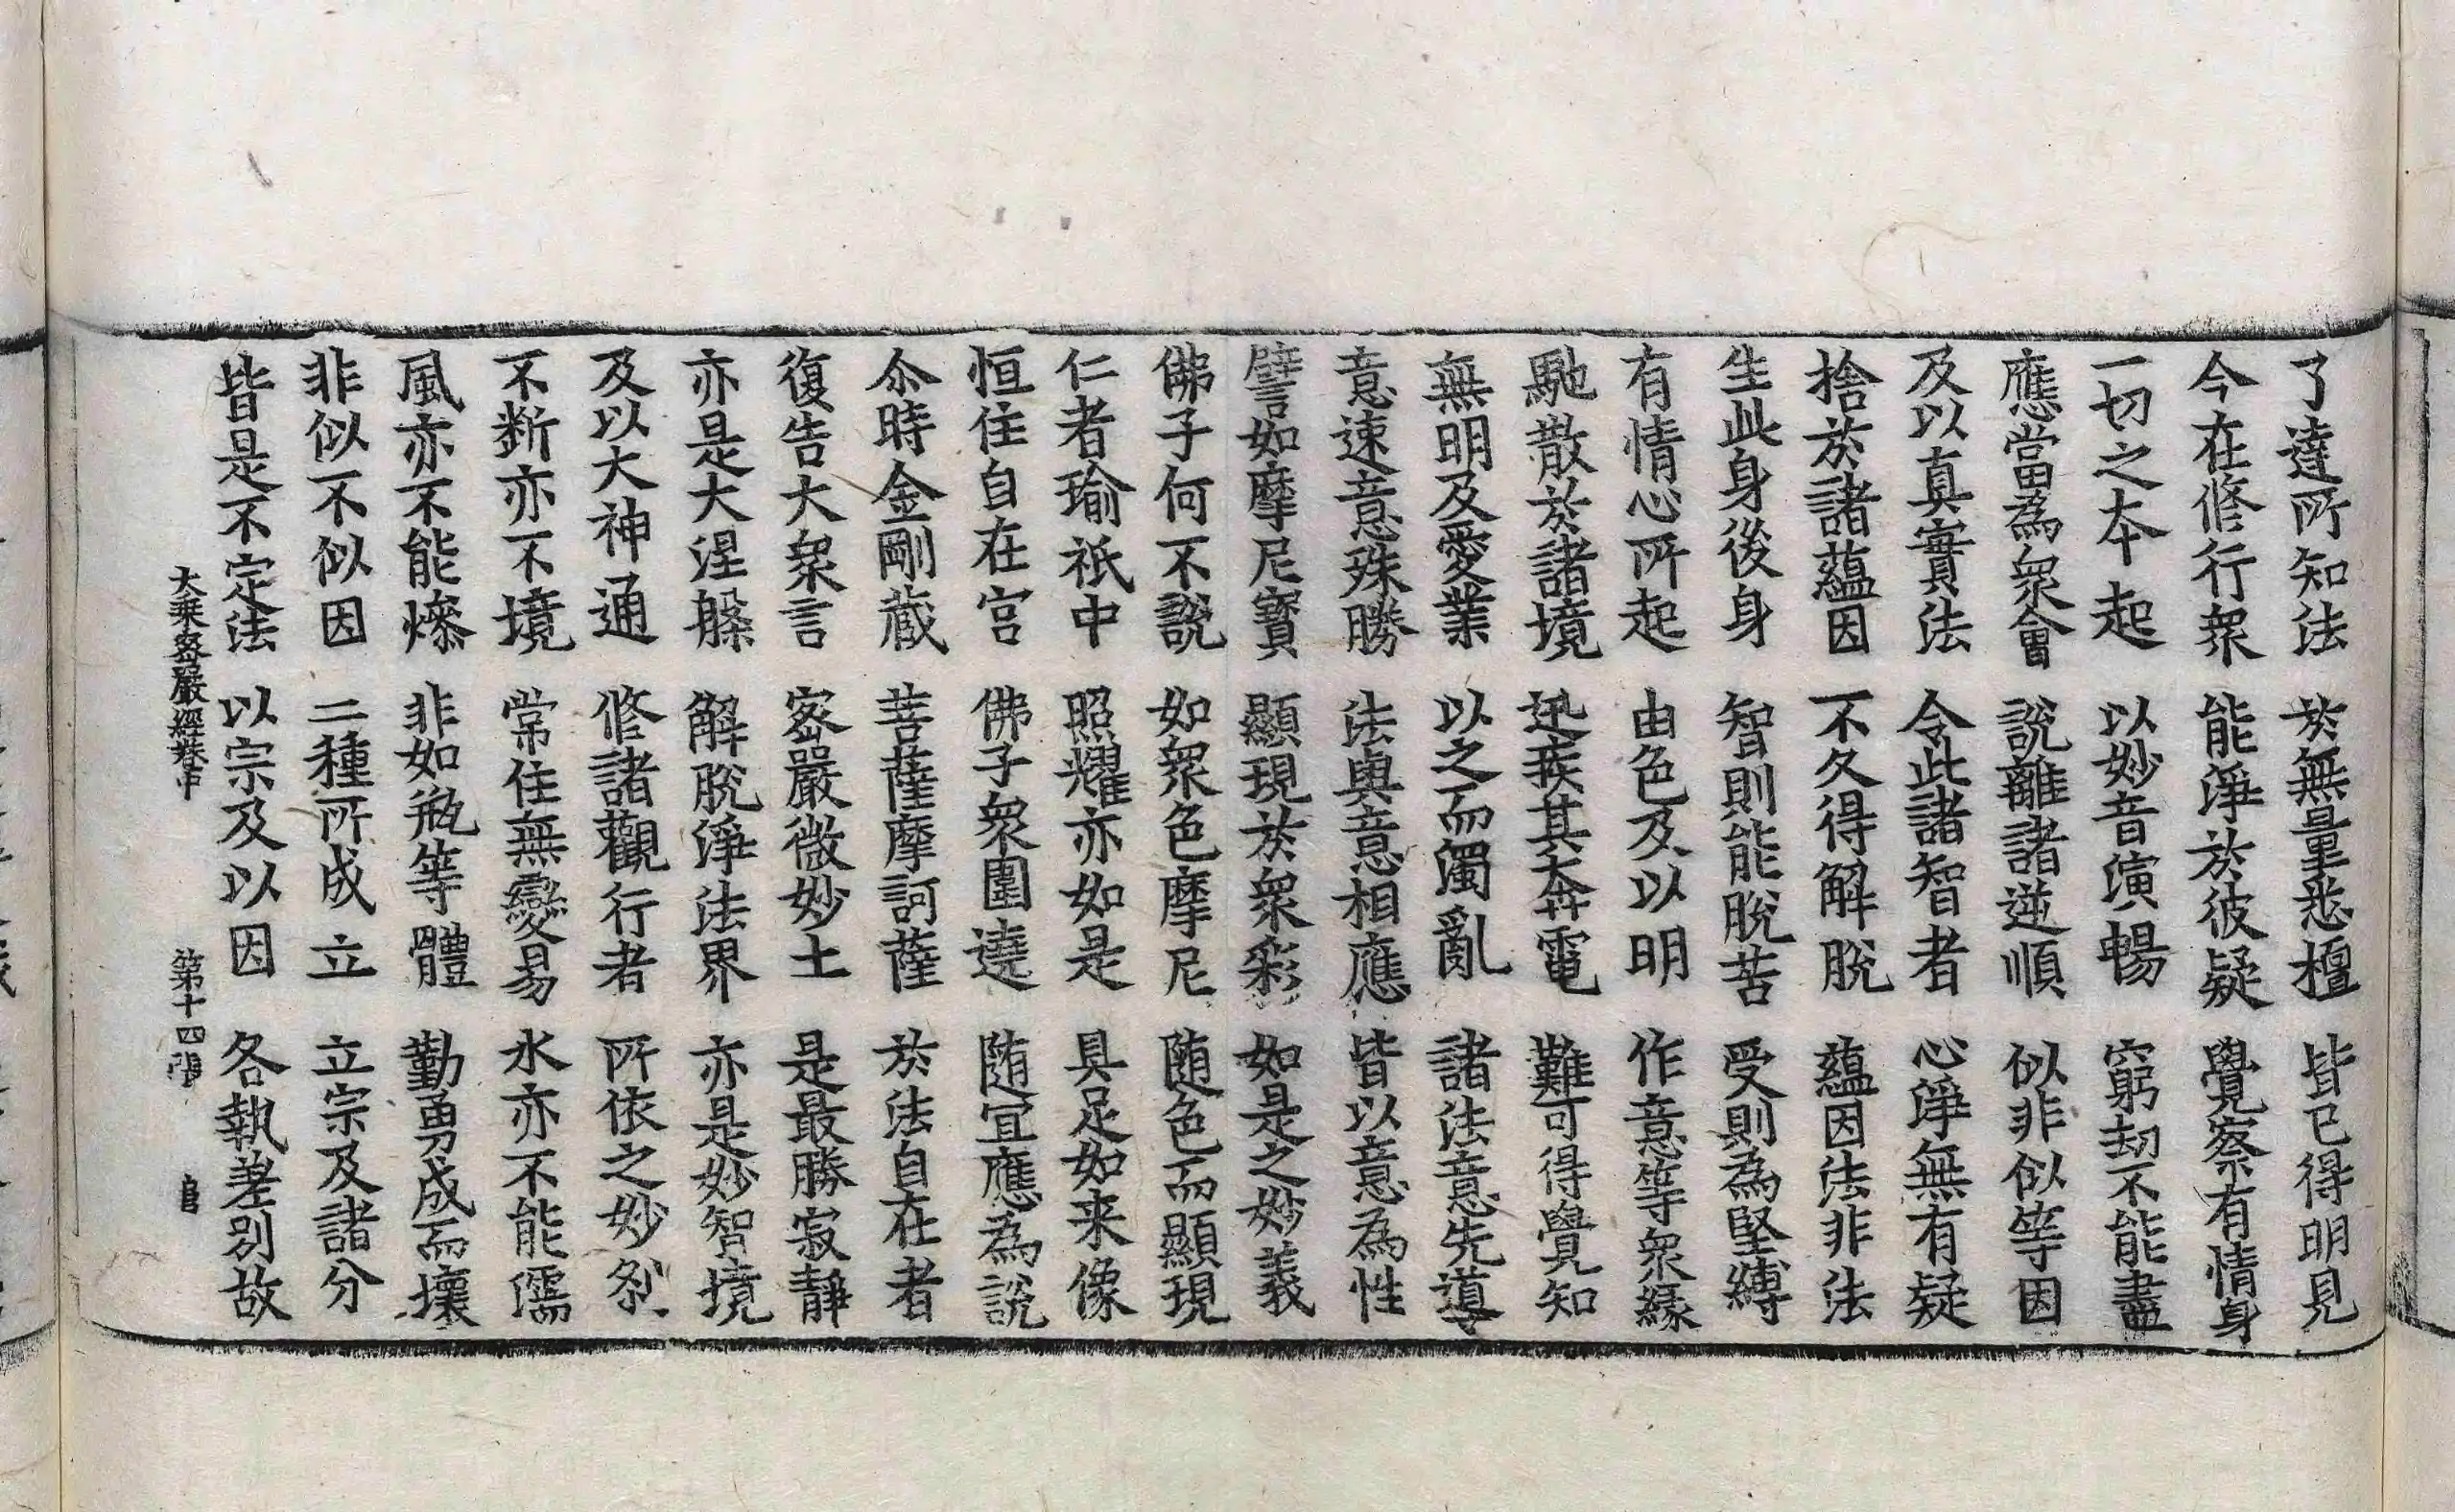 了達所知法 於無量悉檀 皆已得明見
今在修行衆 能淨於彼疑 覺察有情身
一切之本起 以妙音演暢 窮劫不能盡
應當為衆會 說離諸逆順 似非似等因
及以真實法 令此諸智者 心淨無有疑
捨於諸蘊因 不久得解脫 蘊因法非法
生此身後身 智則能脫苦 受則為堅縛
有情心所起 由色及以明 作意等衆緣
馳散於諸境 迅疾其奔電 難可得覺知
無明及愛業 以之而濁亂 諸法意先導
意速意殊勝 法與意相應 皆以意為性
譬如摩尼寶 顯現於衆彩 如是之妙義
佛子何不說 如衆色摩尼 随色而顯現
仁者瑜祇中 照耀亦如是 具足如来像
恒住自在宫 佛子衆圍遶 随宜應為說
尒時金剛藏 菩薩摩訶薩 於法自在者
復告大衆言 密嚴微妙土 是最勝寂靜
亦是大涅槃 解脫淨法界 亦是妙智境
及以大神通 修諸觀行者 所依之妙刹
不斷亦不境 常住無變易 水亦不能濡
風亦不能燥 非如瓶等體 勤勇成而壞
非似不似因 二種所成立 立宗及諸分
皆是不定法 以宗及以因 各執差别故
大乘密嚴經卷中 第十四張